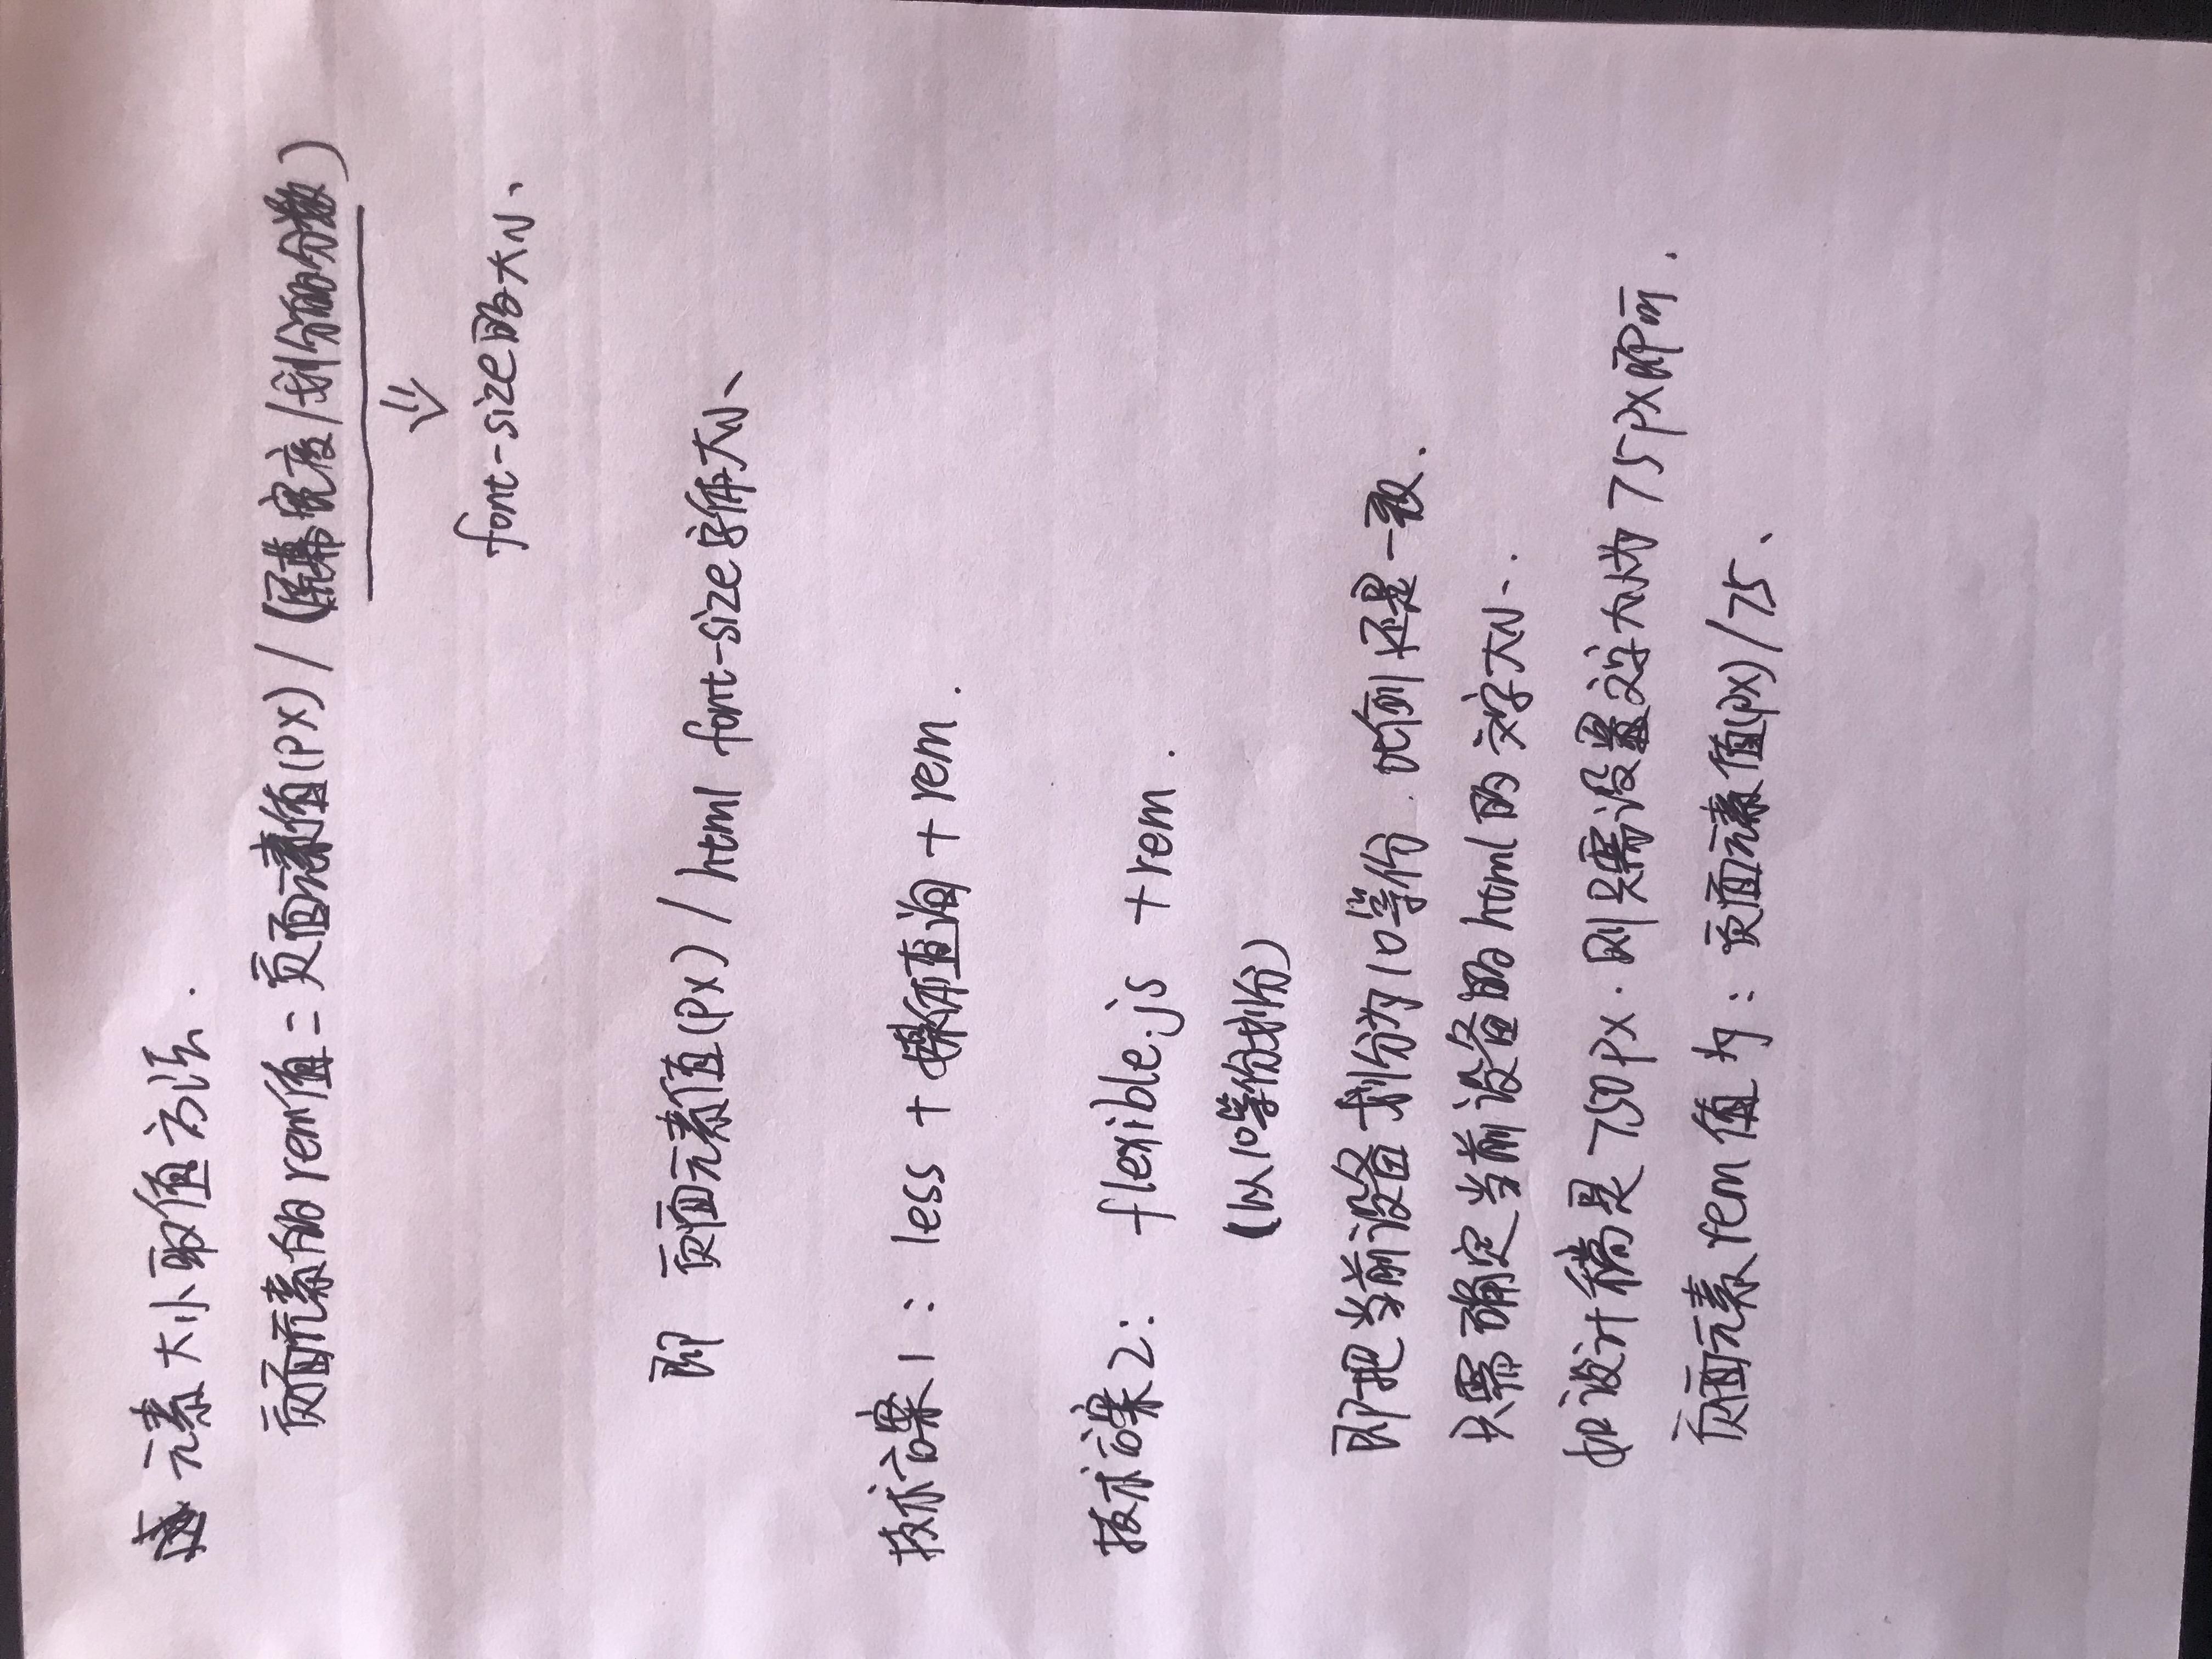 元素大小取值方法.
页面元素的rem值=页面元素值(px)/(屏幕宽度/划分的分数)
font-size的大小、
即 页面元素值(px)/html font-size字体大小、
技术方案1: less+媒体查询+rem.
技术方案2: flexible.js +rem.
(以10等份划分)
即把当前设备划分为10等份.比例还是一致.
只需确定当前设备的html的文字大小.
如设计稿是750px.则只需设置文字大小为75px即可.
页面元素rem值为:页面元素值(px)/75、